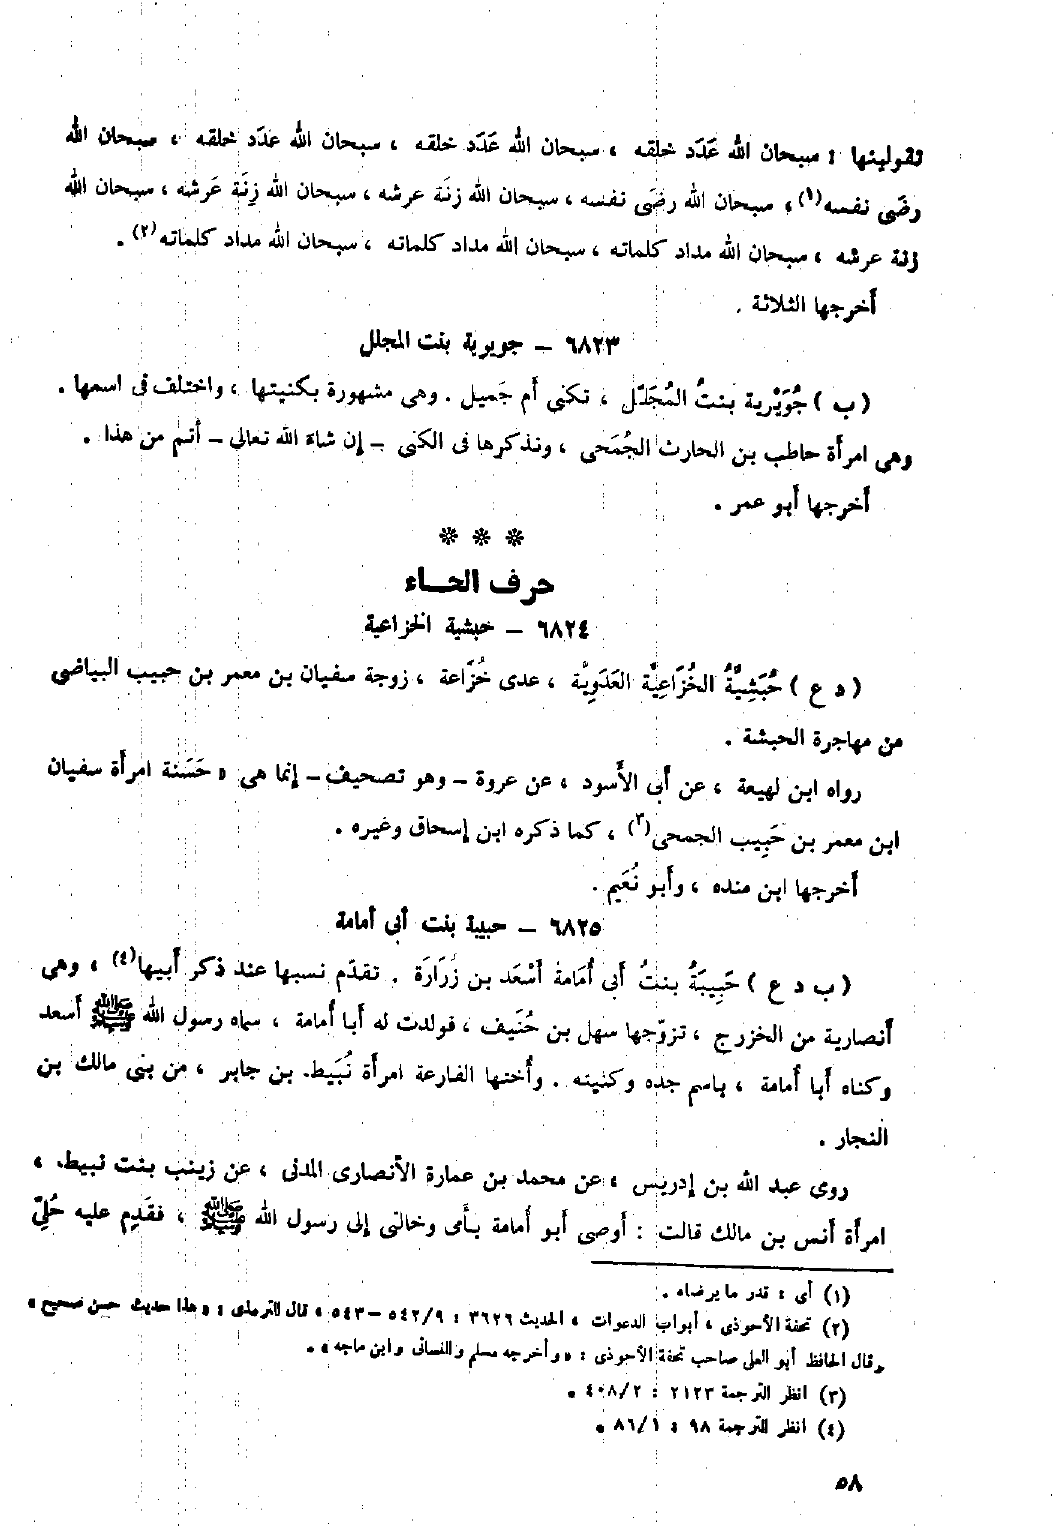 تقولينها : سبحان الله عَدَد خلقه ، سبحان الله عَدَد خلقه ، سبحان الله عدَد خلقه ، سبحان الله
رضَى نفسه(١)، سبحان الله رضَى نفسه ، سبحان الله زنَة عرشه ، سبحان الله زِنَة عَرشه ، سبحان الله
زنة عرشه ، سبحان الله مداد كلماته ، سبحان الله مداد كلماته ، سبحان الله مداد كلماته(٢) .
أخرجها الثلاثة .
٦٨٢٣ – جويرية بنت المجلل
( ب ) جُوَيْرية بنتُ المُجَلّل ، تكنى أم جَميل . وهى مشهورة بكنيتها ، واختلف فى اسمها .
وهى امرأة حاطب بن الحارث الجُمَحى ، ونذكرها فى الكنى – إن شاءَ الله تعالى – أتم من هذا .
أخرجها أبو عمر .
* * *
حرف الحاء
٦٨٢٤ – حبشية الخزاعية
( د ع ) حُبَشِيَّةُ الخُزَاعِيَّة العَدَوِيَّة ، عدى خُزَاعة ، زوجة سفيان بن معمر بن حبيب البياضى
من مهاجرة الحبشة .
رواه ابن لهيعة ، عن أبى الأسود ، عن عروة – وهو تصحيف – إنما هى « حَسَنة امرأة سفيان
ابن معمر بن حَبِيب الجمحى(٣) ، كما ذكره ابن إسحاق وغيره .
أخرجها ابن منده ، وأبو نُعَيم .
٦٨٢٥ – حبيبة بنت أبى أمامة
( ب د ع ) حَبِيبَةُ بنتُ أبى أُمَامة أَسْعَد بن زُرَارَة . تقدّم نسبها عند ذكر أبيها(٤) ، وهى
أنصارية من الخزرج ، تزوّجها سهل بن حُنَيف ، فولدت له أبا أُمامة ، سماه رسول الله ﷺ أسعد
وكناه أبا أُمامة ، باسم جده وكنيته . وأُختها الفارعة امرأة نُبَيط. بن جابر ، من بنى مالك بن
النجار .
روى عبد الله بن إدريس ، عن محمد بن عمارة الأنصارى المدنى ، عن زينب بنت نبيط. ،
امرأة أنس بن مالك قالت : أوصى أبو أُمامة بأمى وخالتى إلى رسول الله ﷺ ، فقَدِم عليه حُلِىّ
(١) أى : قدر ما يرضاه .
(٢) تحفة الأحوذى ، أبواب الدعوات ، الحديث ٣٦٢٦ : ٥٤٢/٩ – ٥٤٣ ، قال الترمذى : « هذا حديث حسن صحيح »
وقال الحافظ أبو العلى صاحب تحفة الأحوذى : « وأخرجه مسلم والنسائى وابن ماجه » .
(٣) انظر الترجمة ٢١٢٣ : ٤٠٨/٢ .
(٤) انظر الترجمة ٩٨ : ٨٦/١ .
٥٨